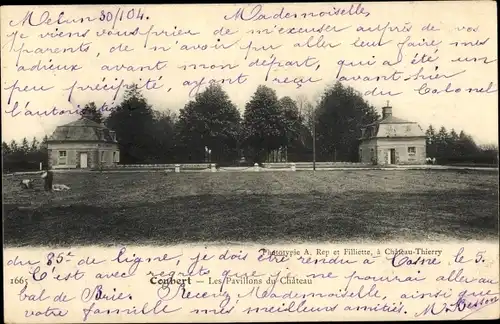 Melun 30/1 04. Mademoiselles
Je viens vous prier de m'excuser auprès de vos
parents, de n'avoir pu aller leur faire mes
adieux avant mon départ, qui a été un
peu précipité, ayant reçu avant-hier
l'autorisation du Colonel
du 85e de Ligne, je dois être rendu à Cosne le 5.
Phototypie A. Rep et Filliette, à Château-Thierry
1665 Combert - Les Pavillons du Château
C'est avec regret que je ne pourrai aller au
bal de Brie. Recevez Mademoiselle, ainsi que
votre famille mes meilleurs amitiés,